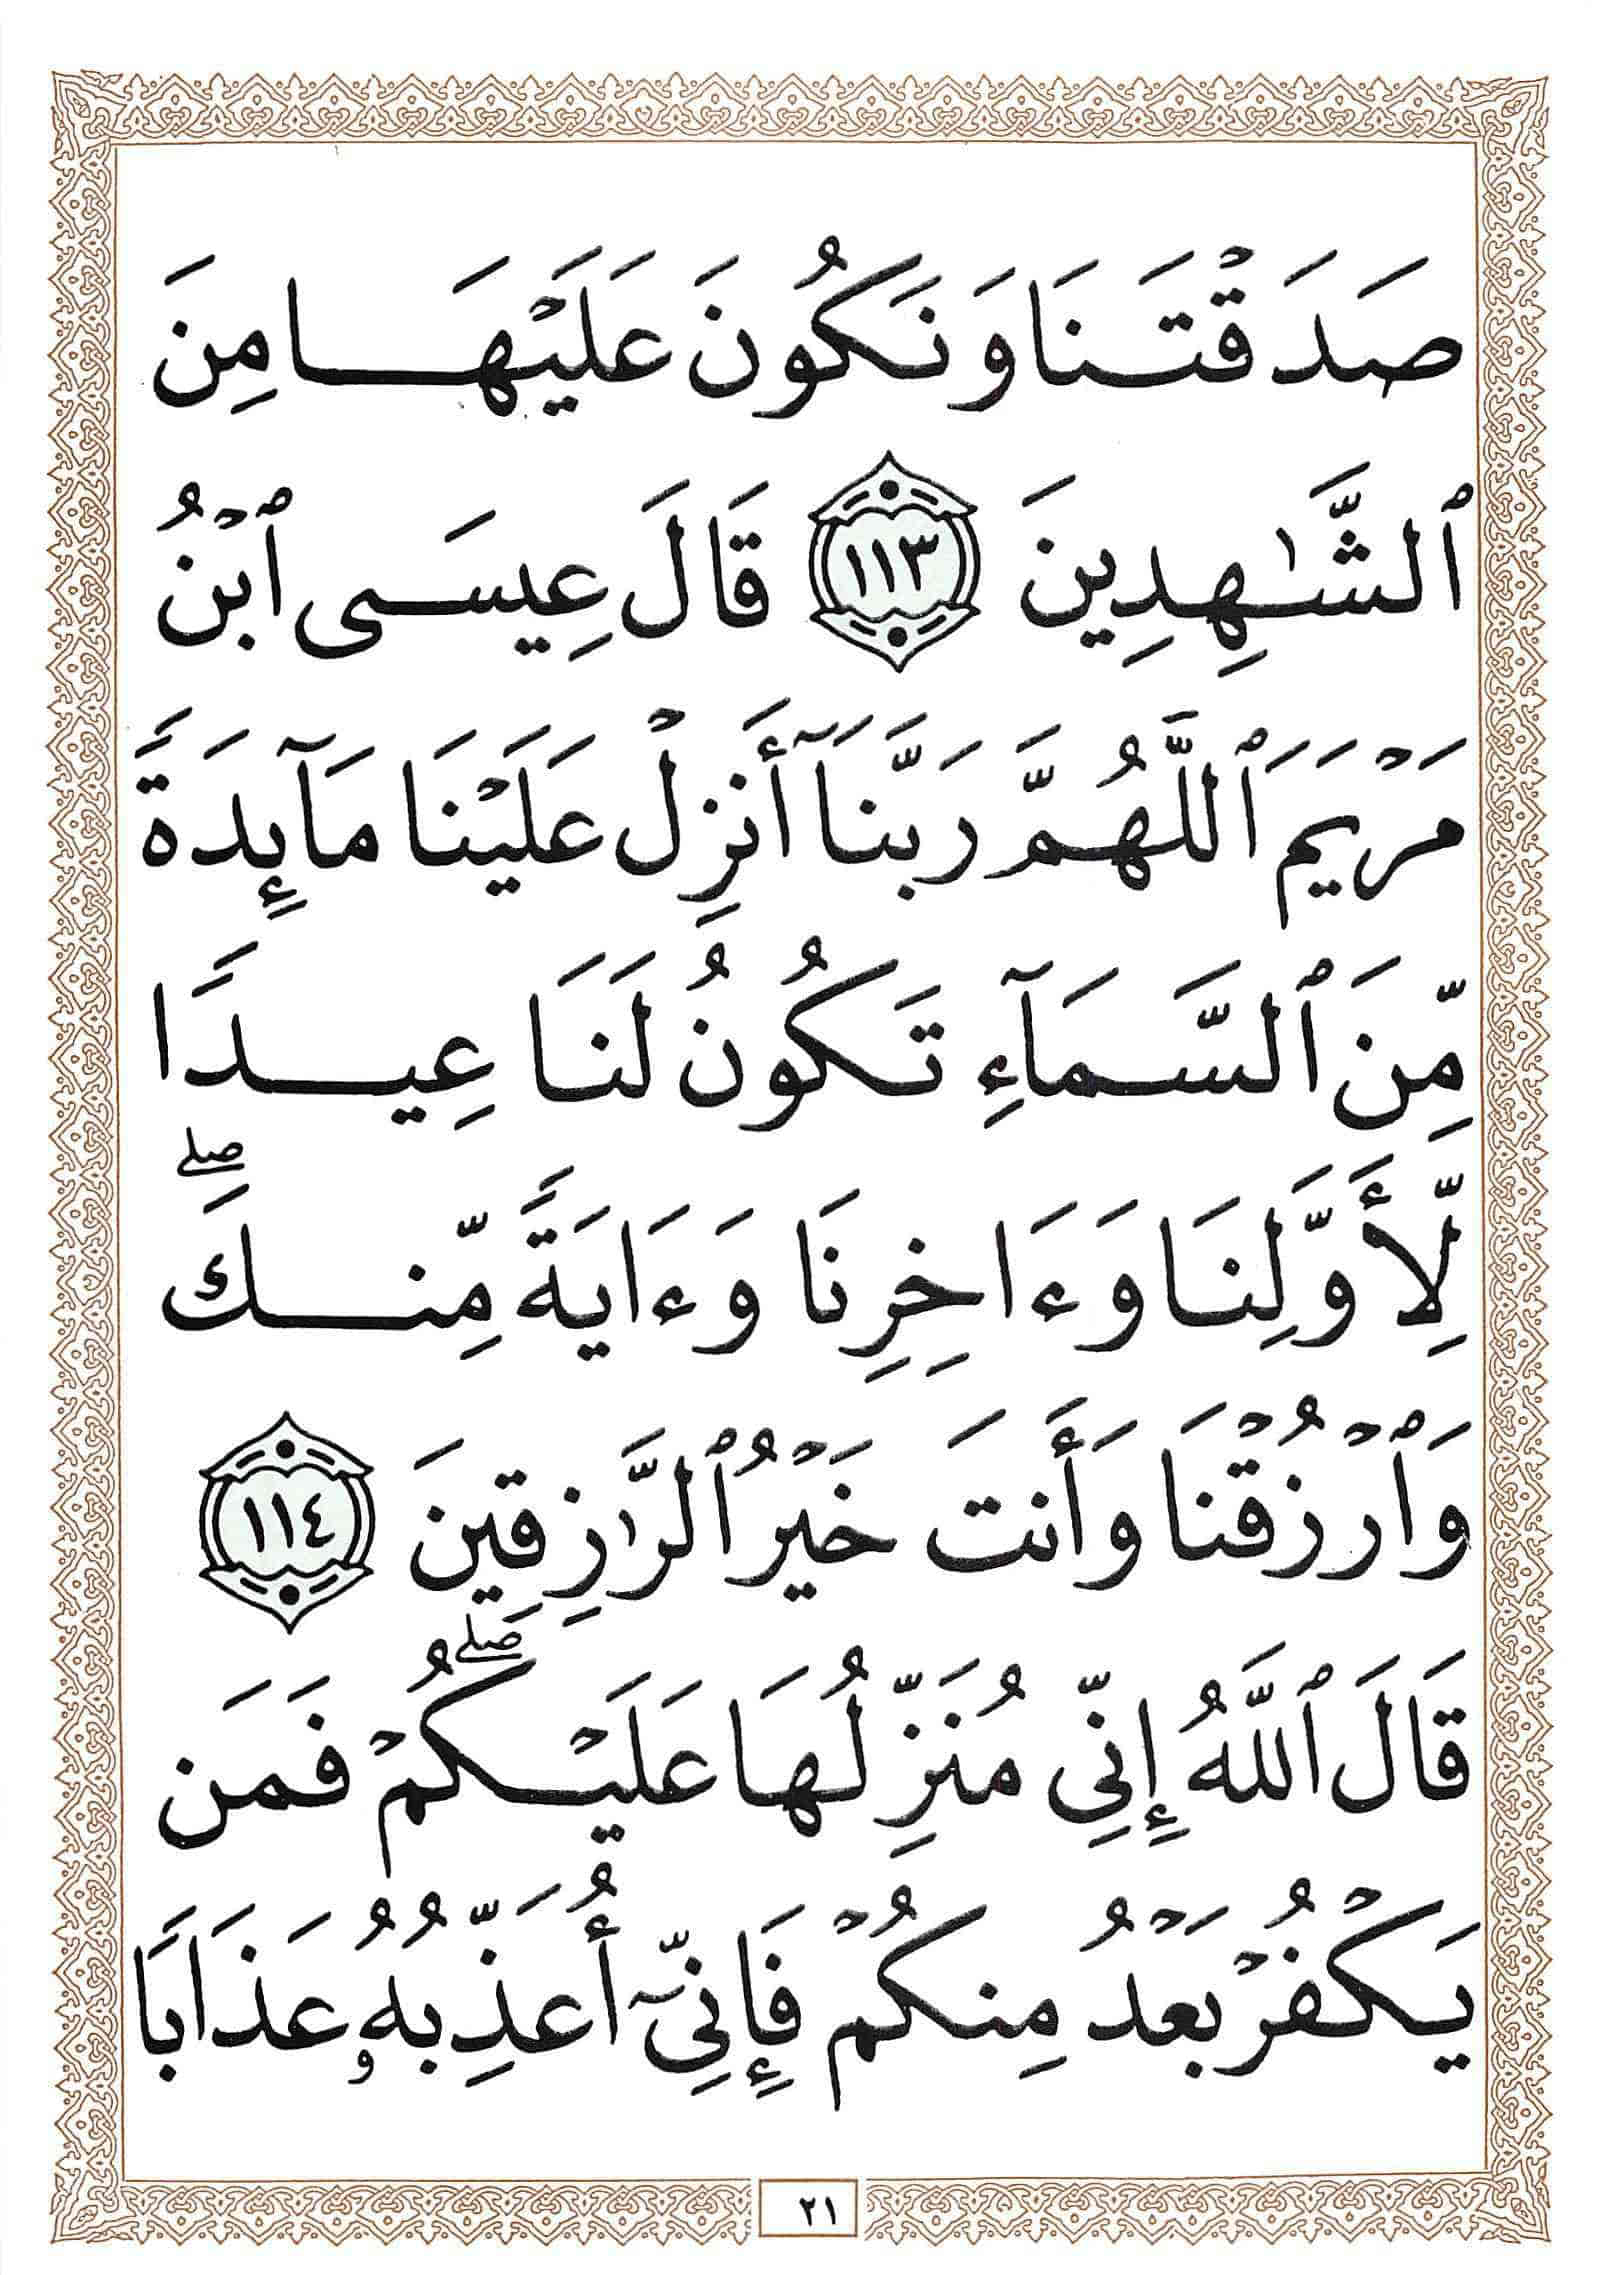 صَدَقْتَنَا وَنَكُونَ عَلَيْهَا مِنَ
ٱلشَّٰهِدِينَ ١١٣ قَالَ عِيسَى ٱبْنُ
مَرْيَمَ ٱللَّهُمَّ رَبَّنَآ أَنزِلْ عَلَيْنَا مَآئِدَةً
مِّنَ ٱلسَّمَآءِ تَكُونُ لَنَا عِيدًا
لِّأَوَّلِنَا وَءَاخِرِنَا وَءَايَةً مِّنكَ ۖ
وَٱرْزُقْنَا وَأَنتَ خَيْرُ ٱلرَّٰزِقِينَ ١١٤
قَالَ ٱللَّهُ إِنِّى مُنَزِّلُهَا عَلَيْكُمْ ۖ فَمَن
يَكْفُرْ بَعْدُ مِنكُمْ فَإِنِّىٓ أُعَذِّبُهُۥ عَذَابًا
٢١